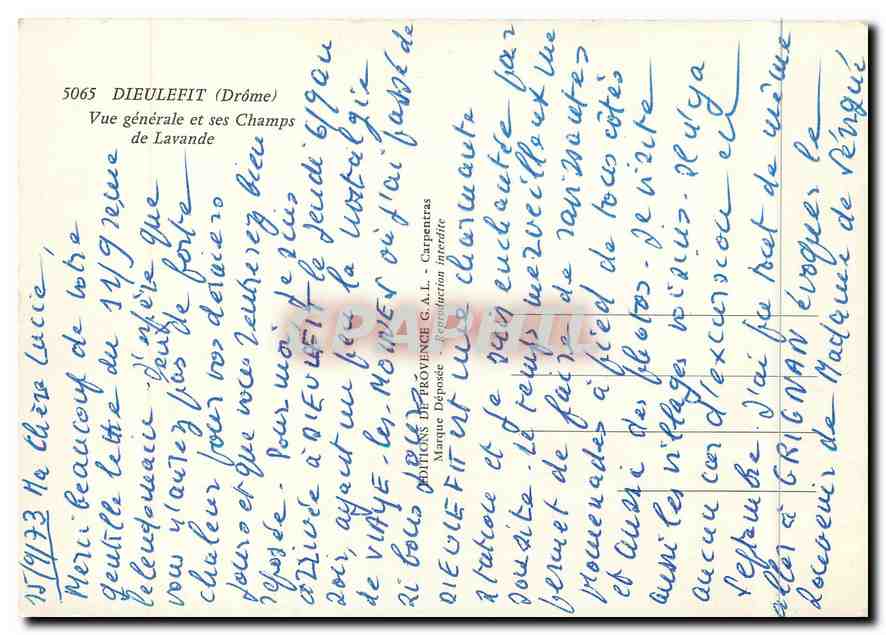 5065 DIEULEFIT (Drôme)
Vue générale et ses Champs
de Lavande
EDITIONS DE PROVENCE G.A.L. - Carpentras
Marque Déposée - Reproduction interdite
15/9/73 Ma Chère Lucie,
Merci beaucoup de votre
gentille lettre du 11/9 reçue
le lendemain. J'espère que
vous n'aurez pas de forte
chaleur pour vos derniers
jours et que vous rentrerez bien
reposée. Pour moi je suis
arrivée à DIEULEFIT le jeudi 6/9 au
soir, ayant un peu la nostalgie
de VIAYE-les-MOINES où j'ai passé de
si bons jours.
DIEULEFIT est une charmante
station et je suis enchantée par
son site. Le temps merveilleux me
permet de faire de ravissantes
promenades à pied de tous côtés
et aussi des photos. Je visite
aussi les villages voisins. Il n'y a
aucun car d'excursion en
septembre. J'ai pu tout de même
aller à GRIGNAN évoquer le
souvenir de Madame de Sévigné
CPAPHIL